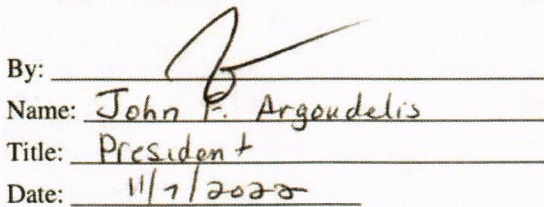 By:
Name: John F. Argoudelis
Title: President
Date: 11/7/2022